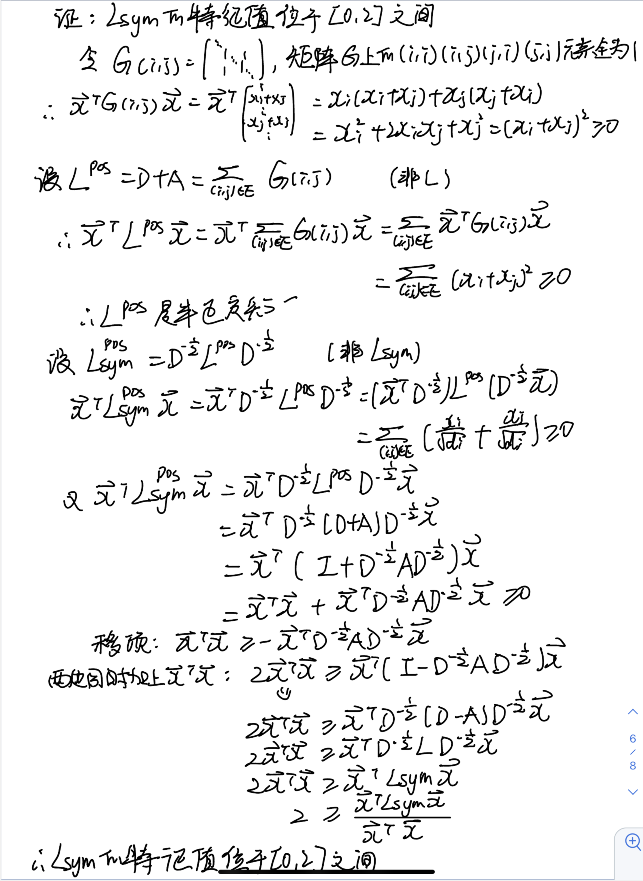 证：Lsym的特征值位于[0,2]之间
令 G(i,j) = ( ), 矩阵G上的(i,i)(i,j)(j,i)(j,j)元素全为1
∴ x⃗ᵀG(i,j)x⃗ = x⃗ᵀ[⋮ xi+xj ⋮ xj+xi ⋮] = xi(xi+xj)+xj(xj+xi)
= xi²+2xixj+xj² = (xi+xj)² ≥0
设 L^pos = D+A = Σ_{(i,j)∈E} G(i,j) (非L)
∴ x⃗ᵀ L^pos x⃗ = x⃗ᵀ Σ_{(i,j)∈E} G(i,j) x⃗ = Σ_{(i,j)∈E} x⃗ᵀG(i,j)x⃗
= Σ_{(i,j)∈E} (xi+xj)² ≥0
∴ L^pos 是半正定
设 L^pos_sym = D^-½ L^pos D^-½ (非Lsym)
x⃗ᵀ L^pos_sym x⃗ = x⃗ᵀ D^-½ L^pos D^-½ = (x⃗ᵀ D^-½) L^pos (D^-½ x⃗)
= Σ_{(i,j)∈E} (xi/√di + xj/√dj) ≥0
又 x⃗ᵀ L^pos_sym x⃗ = x⃗ᵀ D^-½ L^pos D^-½ x⃗
= x⃗ᵀ D^-½ (D+A) D^-½ x⃗
= x⃗ᵀ ( I + D^-½ A D^-½ ) x⃗
= x⃗ᵀx⃗ + x⃗ᵀ D^-½ A D^-½ x⃗ ≥0
移项: x⃗ᵀx⃗ ≥ -x⃗ᵀ D^-½ A D^-½ x⃗
两边同时加上 x⃗ᵀx⃗ : 2x⃗ᵀx⃗ ≥ x⃗ᵀ( I - D^-½ A D^-½ )x⃗
2x⃗ᵀx⃗ ≥ x⃗ᵀ D^-½ (D-A) D^-½ x⃗
2x⃗ᵀx⃗ ≥ x⃗ᵀ D^-½ L D^-½ x⃗
2x⃗ᵀx⃗ ≥ x⃗ᵀ Lsym x⃗
2 ≥ x⃗ᵀLsym x⃗ / x⃗ᵀ x⃗
∴ Lsym的特征值位于[0,2]之间
6
/
8